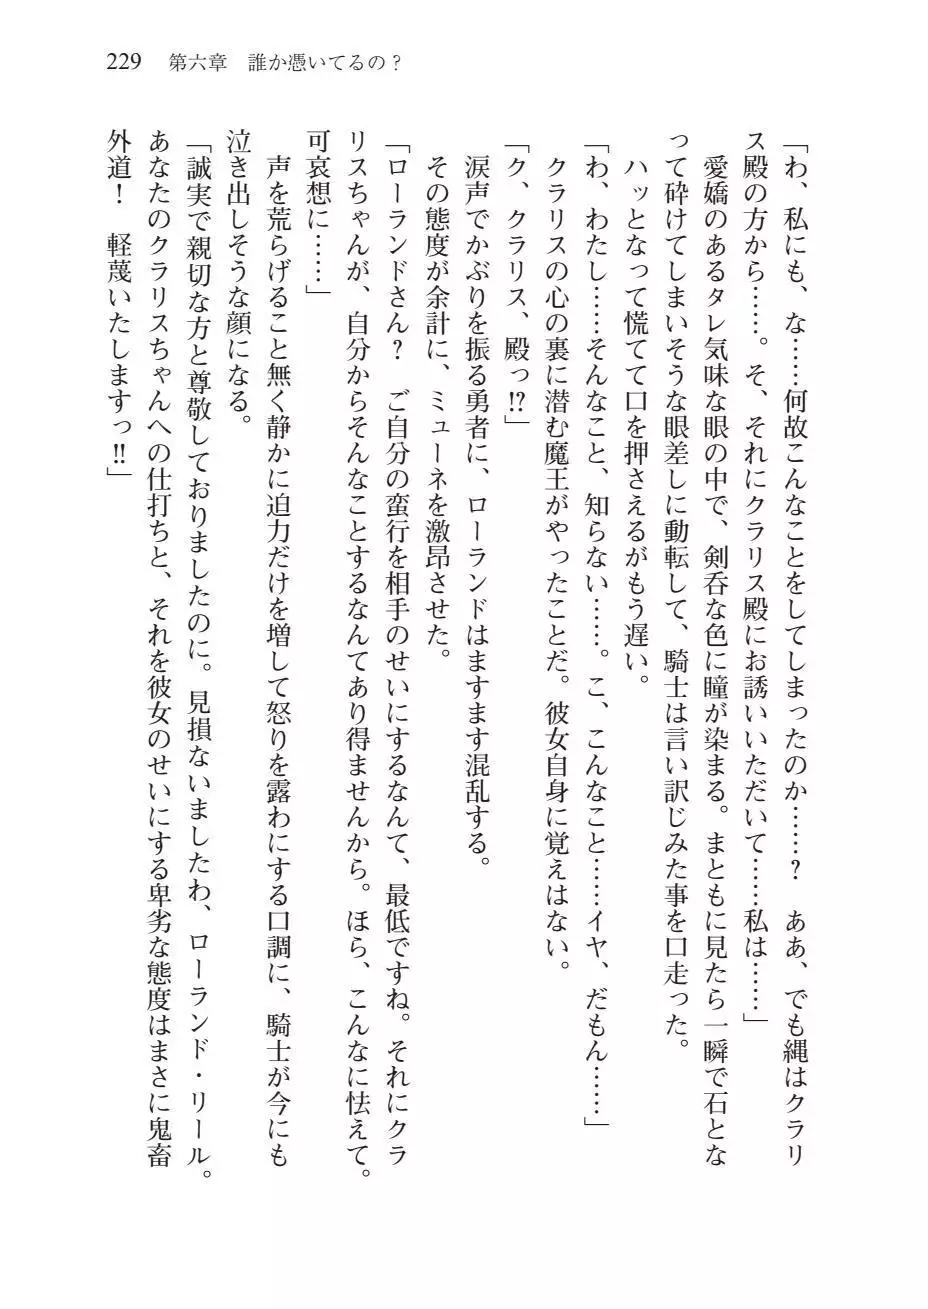 229 第六章 誰か憑いてるの？
「わ、私にも、な……何故こんなことをしてしまったのか……？　ああ、でも縄はクラリ
ス殿の方から……。そ、それにクラリス殿にお誘いいただいて……私は……」
　愛嬌のあるタレ気味な眼の中で、剣呑な色に瞳が染まる。まともに見たら一瞬で石とな
って砕けてしまいそうな眼差しに動転して、騎士は言い訳じみた事を口走った。
　ハッとなって慌てて口を押さえるがもう遅い。
「わ、わたし……そんなこと、知らない……。こ、こんなこと……イヤ、だもん……」
　クラリスの心の裏に潜む魔王がやったことだ。彼女自身に覚えはない。
「ク、クラリス、殿っ!?」
　涙声でかぶりを振る勇者に、ローランドはますます混乱する。
　その態度が余計に、ミューネを激昂させた。
「ローランドさん？　ご自分の蛮行を相手のせいにするなんて、最低ですね。それにクラ
リスちゃんが、自分からそんなことするなんてあり得ませんから。ほら、こんなに怯えて。
可哀想に……」
　声を荒らげること無く静かに迫力だけを増して怒りを露わにする口調に、騎士が今にも
泣き出しそうな顔になる。
「誠実で親切な方と尊敬しておりましたのに。見損ないましたわ、ローランド・リール。
あなたのクラリスちゃんへの仕打ちと、それを彼女のせいにする卑劣な態度はまさに鬼畜
外道！　軽蔑いたしますっ!!」